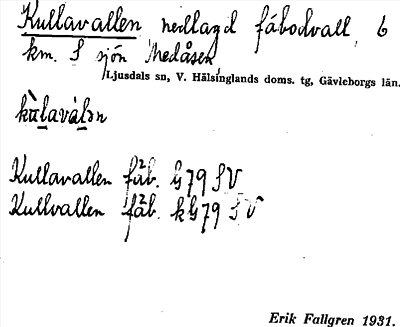 Kullavallen nedlagd fäbodvall, 6
km. S sjön Medåsen
Ljusdals sn, V. Hälsinglands doms. tg, Gävleborgs län.
kùlaválən
Kullavallen fäb.² G79 SV
Kullvallen fäb.² kG79 SV
Erik Fallgren 1931.